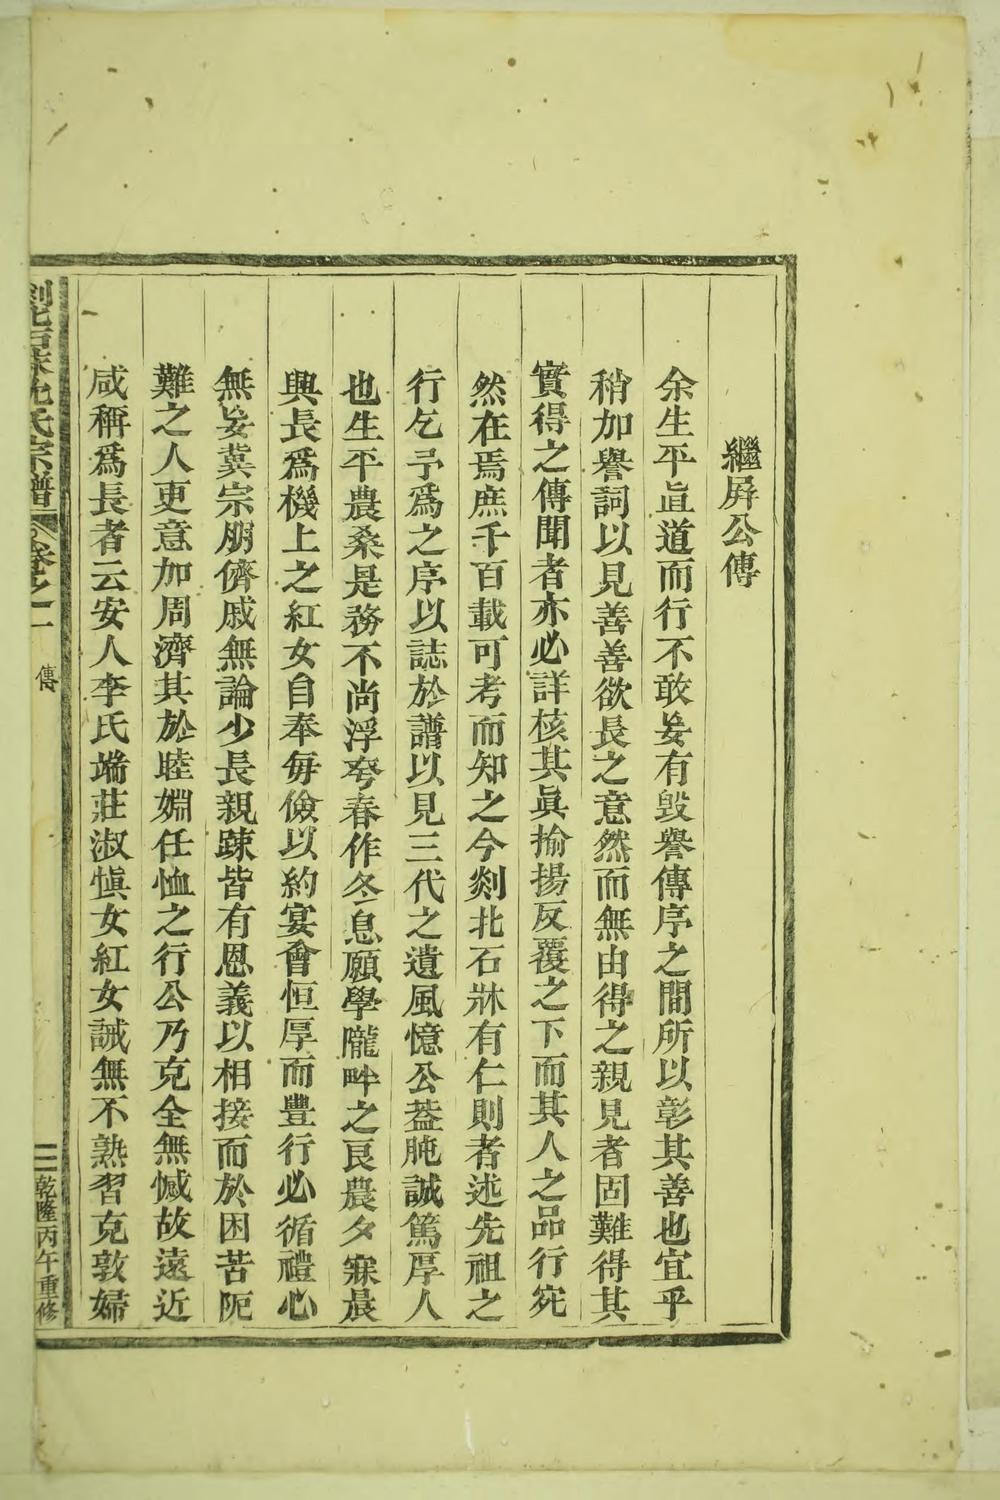 繼屏公傳
余生平直道而行不敢妄有毀譽傳序之間所以彰其善也宜乎
稍加譽詞以見善善欲長之意然而無由得之親見者固難得其
實得之傳聞者亦必詳核其眞揄揚反覆之下而其人之品行宛
然在焉庶千百載可考而知之今剡北石牀有仁則者述先祖之
行乞予爲之序以誌於譜以見三代之遺風憶公葢肫誠篤厚人
也生平農桑是務不尚浮夸春作冬息願學隴畔之良農夕寐晨
興長爲機上之紅女自奉每儉以約宴會恒厚而豊行必循禮心
無妄冀宗朋儕戚無論少長親踈皆有恩義以相接而於困苦阨
難之人更意加周濟其於睦婣任恤之行公乃克全無憾故遠近
咸稱爲長者云安人李氏端莊淑愼女紅女誡無不熟習克敦婦
剡北石牀沈氏宗譜 卷之一 傳 二 乾隆丙午重修